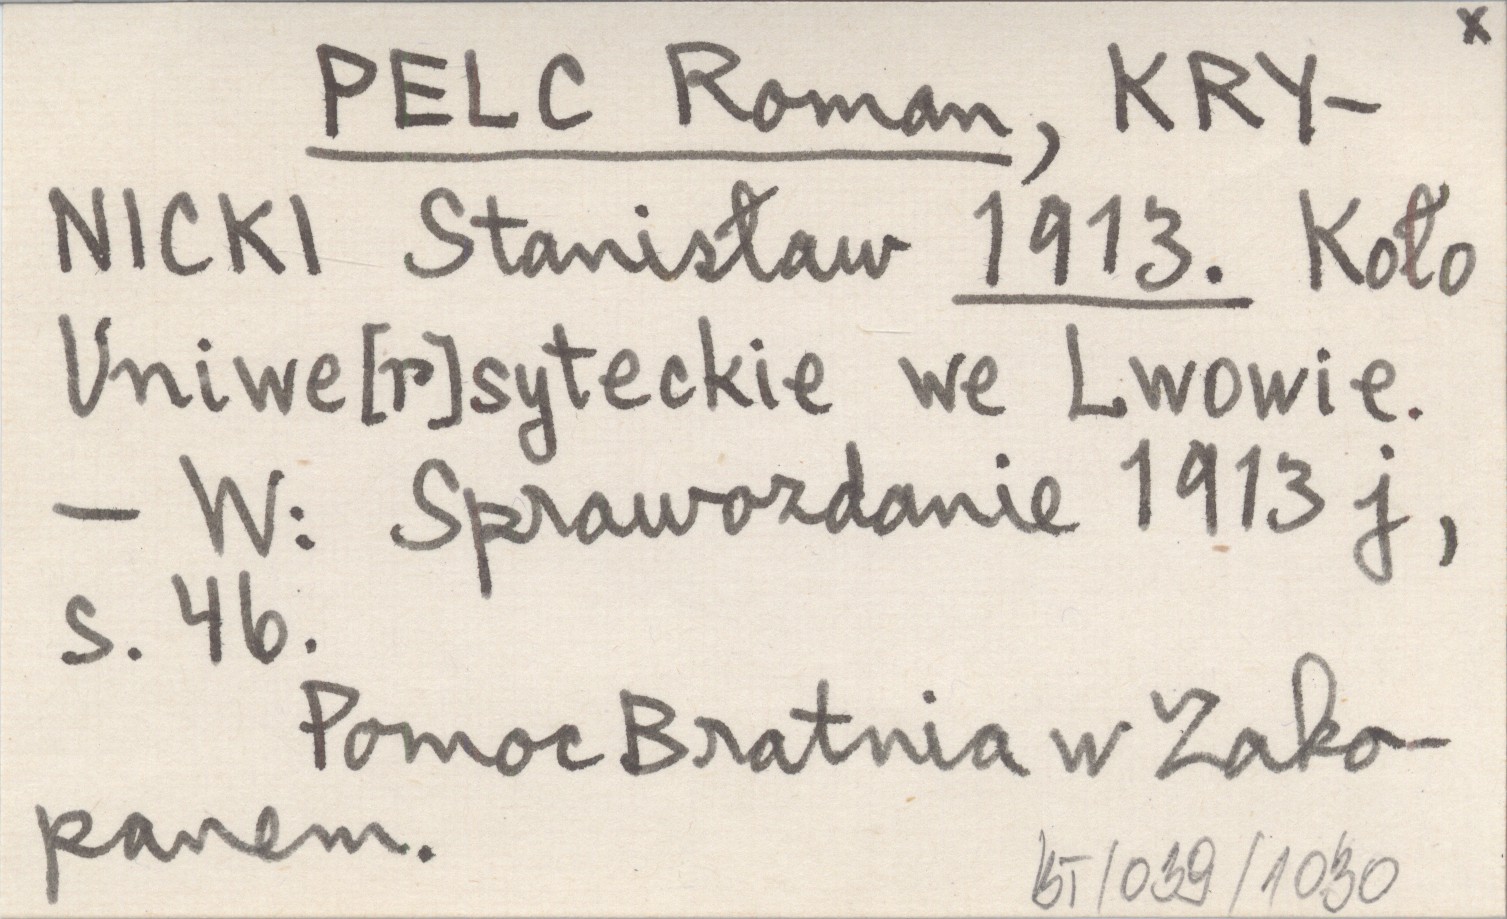 x
PELC Roman, KRY-
NICKI Stanisław 1913. Koło
Uniwe[r]syteckie we Lwowie.
— W: Sprawozdanie 1913 j,
s. 46.
Pomoc Bratnia w Zako-
panem.
BT/039/1030